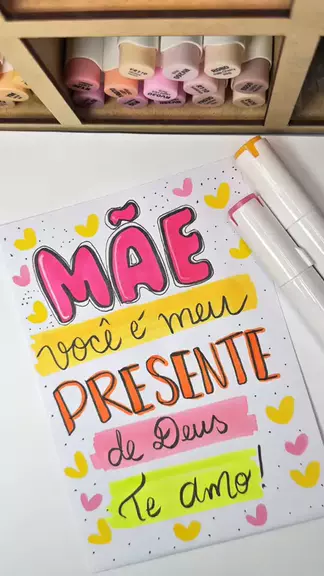 MÃE
você é meu
PRESENTE
de Deus
Te amo!